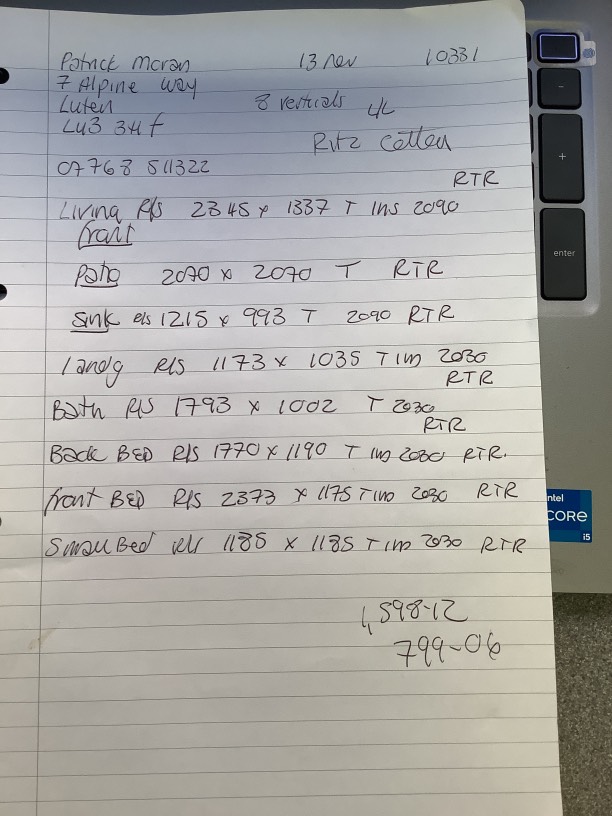 Patrick Moran 13 nov 10331
7 Alpine Way
Luton 8 verticals
LU3
Ritz Cotton
07768 511322
RTR
Living R/S 2345 x 1337 T Ins 2090
front
Patio 2070 x 2070 T RTR
Sink R/S 1215 x 993 T 2090 RTR
Landg R/S 1173 x 1035 T Ins 2030
RTR
Bath R/S 1793 x 1002 T 2030
RTR
Back BED R/S 1770 x 1190 T Ins 2030 RTR.
front BED R/S 2373 x 1175 T Ins 2030 RTR
Small Bed R/S 1185 x 1185 T Ins 2030 RTR
1,598-12
799-06
enter
intel
CORE
i5